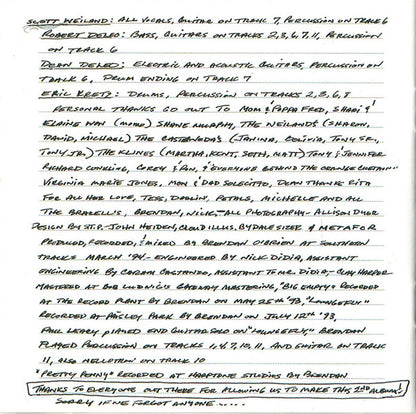 SCOTT WEILAND: ALL VOCALS, GUITAR ON TRACK 7, PERCUSSION ON TRACK 6
ROBERT DELEO: BASS, GUITARS ON TRACKS 2,3,6,7,11, PERCUSSION
ON TRACK 6
DEAN DELEO: ELECTRIC AND ACOUSTIC GUITARS, PERCUSSION ON
TRACK 6, DRUM ENDING ON TRACK 7
ERIC KRETZ: DRUMS, PERCUSSION ON TRACKS 2,3,6,8
PERSONAL THANKS GO OUT TO MOM & PAPPA FRED, SHARI &
ELAINE NAN (MOMO) SHANE MURPHY, THE WEILANDS (SHARON,
DAVID, MICHAEL) THE CASTENADA'S (JANINA, OLIVIA, TONY SR.,
TONY JR.) THE KLINES (MARTHA, KENT, SETH, MATT) TONY & JENNIFER
RICHARD CONKLING, COREY & PAN, & EVERYONE BEHIND THE ORANGE CURTAIN"
VIRGINIA MARIE JONES, MOM & DAD SOLECITTO, DEAN THANKS RITA
FOR ALL HER LOVE, TESS, PETALS, MICHELLE AND ALL
THE BRAZELL'S, BRENDAN, NICK, ALL PHOTOGRAPHY - ALLISON DYER
DESIGN BY S.T.P. JOHN HEIDEN, CLOUD ILLUS. BY DALE SIZER & METAFOR
PRODUCED, RECORDED, & MIXED BY BRENDAN O'BRIEN AT SOUTHERN
TRACKS MARCH '94 - ENGINEERED BY NICK DIDIA, ASSISTANT
ENGINEERING BY CARAM COSTANZO, ASSISTANT TO MR. DIDIA - CLAY HARPER
MASTERED AT BOB LUDWIG'S GATEWAY MASTERING, "BIG EMPTY" RECORDED
AT THE RECORD PLANT BY BRENDAN ON MAY 25TH '93, "LOUNGE FLY"
RECORDED AT PAISLEY PARK BY BRENDAN ON JULY 12TH '93,
PAUL LEARY PLAYED END GUITAR SOLO ON "LOUNGE FLY," BRENDAN
PLAYED PERCUSSION ON TRACKS 1,4,7,10,11, AND GUITAR ON TRACK
11, ALSO MELLOTRON ON TRACK 10
"PRETTY PENNY" RECORDED AT HARPTONE STUDIOS BY BRENDAN
THANKS TO EVERYONE OUT THERE FOR ALLOWING US TO MAKE THIS 2ND ALBUM!
SORRY IF WE FORGOT ANYONE .....